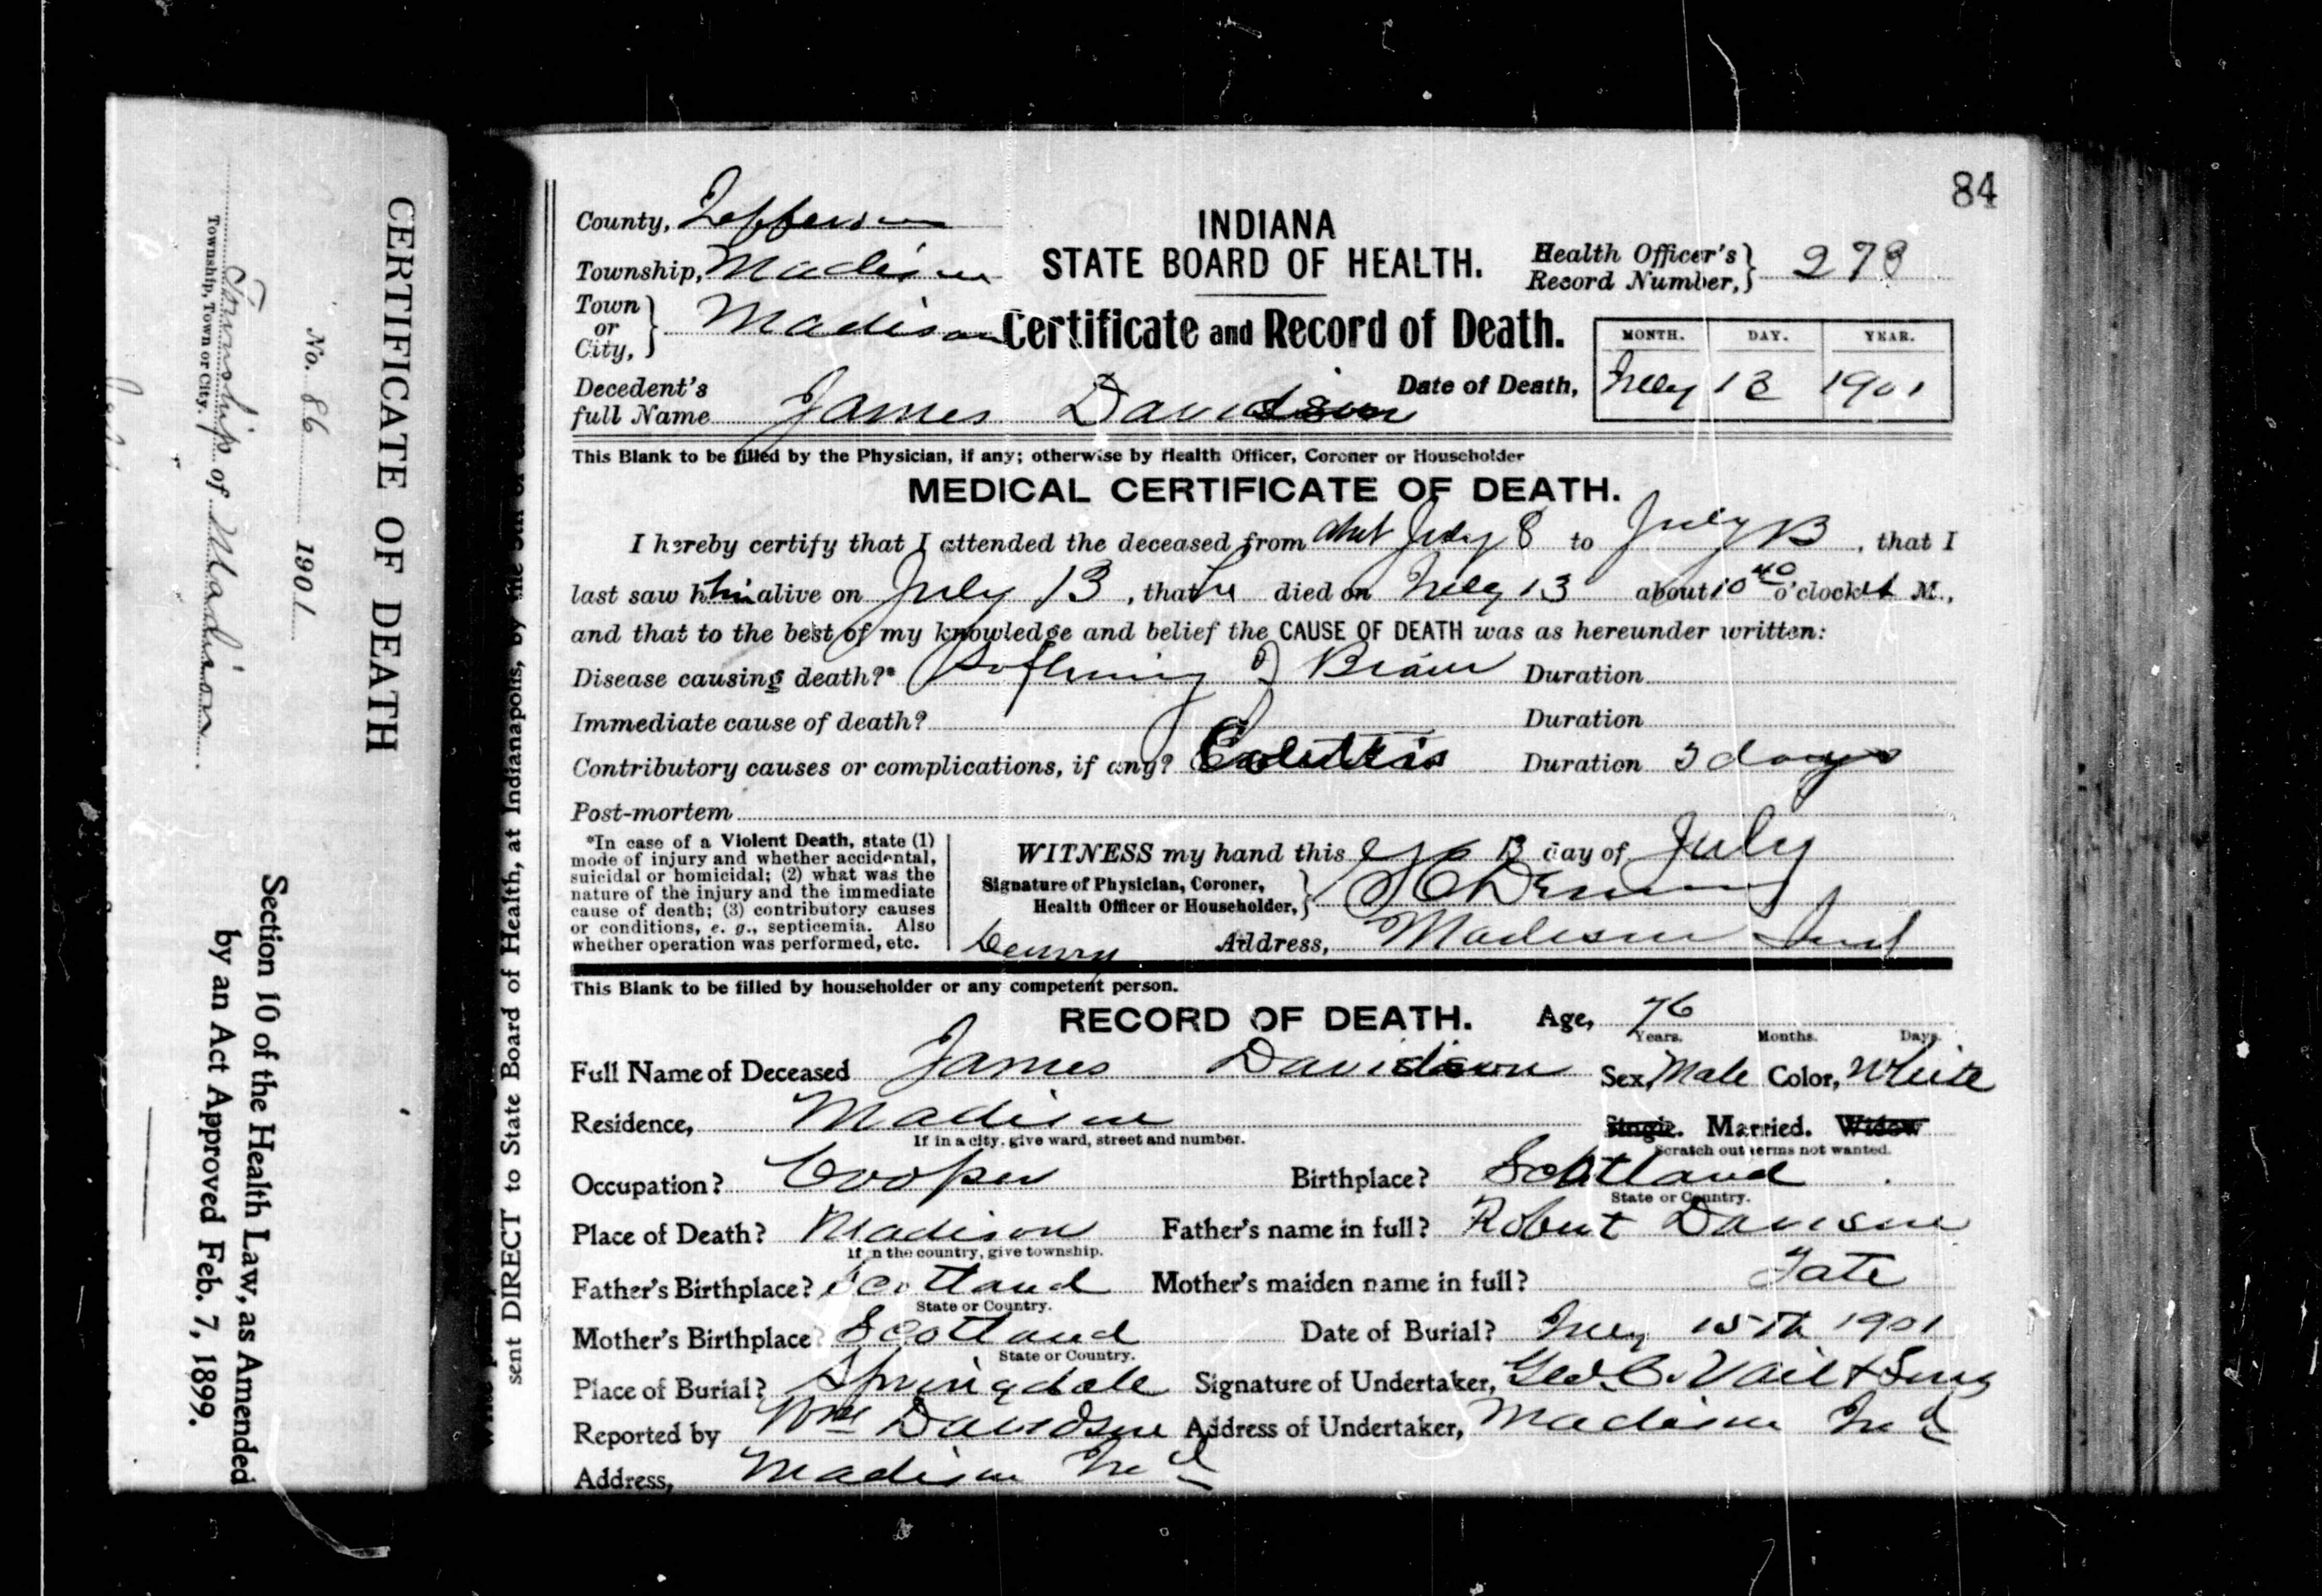 84
County, Jefferson
Township, Madison
Town or City, } Madison
INDIANA
STATE BOARD OF HEALTH.
Certificate and Record of Death.
Health Officer's Record Number, } 278
Decedent's full Name James Davidson
Date of Death,
MONTH. DAY. YEAR.
July 13 1901
This Blank to be filled by the Physician, if any; otherwise by Health Officer, Coroner or Householder
MEDICAL CERTIFICATE OF DEATH.
I hereby certify that I attended the deceased from abut July 8 to July 13, that I
last saw him alive on July 13, that he died on July 13 about 10 40 o'clock A M.,
and that to the best of my knowledge and belief the CAUSE OF DEATH was as hereunder written:
Disease causing death?* Softning of Brain Duration
Immediate cause of death? Duration
Contributory causes or complications, if any? Colitis Duration 3 days
Post-mortem
*In case of a Violent Death, state (1)
mode of injury and whether accidental,
suicidal or homicidal; (2) what was the
nature of the injury and the immediate
cause of death; (3) contributory causes
or conditions, e. g., septicemia. Also
whether operation was performed, etc.
WITNESS my hand this 13 day of July
Signature of Physician, Coroner,
Health Officer or Householder, }
Denny
Address, Madison Ind
This Blank to be filled by householder or any competent person.
RECORD OF DEATH. Age, 76
Years. Months. Days.
Full Name of Deceased James Davidson Sex, Male Color, White
Residence, Madison Single. Married. Widow
If in a city, give ward, street and number.
Scratch out terms not wanted.
Occupation? Cooper Birthplace? Scotland
State or Country.
Place of Death? Madison Father's name in full? Robert Davison
If in the country, give township.
Father's Birthplace? Scotland Mother's maiden name in full? Tate
State or Country.
Mother's Birthplace? Scotland Date of Burial? July 15th 1901
State or Country.
Place of Burial? Springdale Signature of Undertaker, Geo. C. Vail & Sons
Reported by Wm Davidson Address of Undertaker, Madison Ind
Address, Madison Ind
CERTIFICATE OF DEATH
No. 86 1901
Township of Madison
Township, Town or City.
Section 10 of the Health Law, as Amended
by an Act Approved Feb. 7, 1899.
sent DIRECT to State Board of Health, at Indianapolis, by the